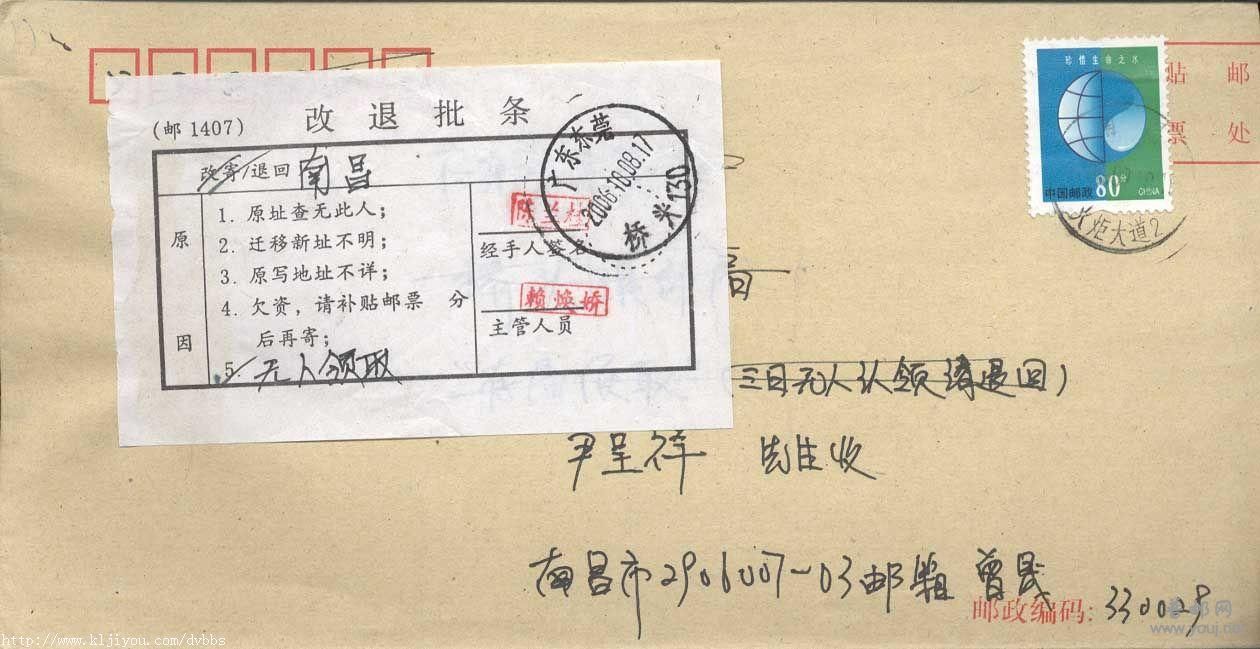 (邮 1407) 改退批条
改寄/退回 南昌
原因
1. 原址查无此人；
2. 迁移新址不明；
3. 原写地址不详；
4. 欠资，请补贴邮票 分
后再寄；
5. 无人领取
经手人签名
赖焕娇
主管人员
广东东莞
2006.10.08.17
桥头130
珍惜生命之水
中国邮政 80分 CHINA
贴邮
票处
火炬大道2
(三日无人认领请退回)
尹呈祥 先生收
南昌市2906007-03邮箱 曾民
邮政编码：330029
http://www.kljiyou.com/dvbbs
www.youj.net